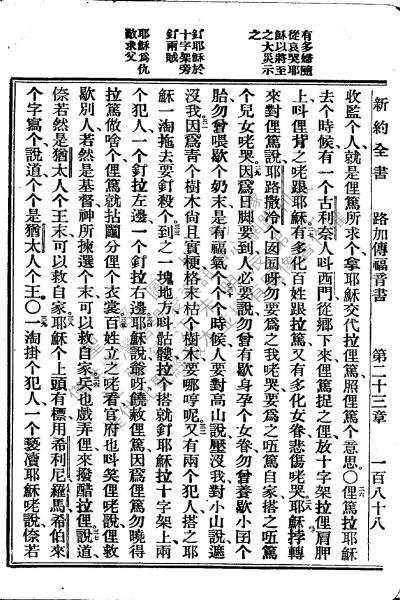 新約全書 路加傳福音書 第二十三章 一百八十八
有多婦隨
從哀哭耶
穌以將至
之大災示
之
釘耶穌於
十字架旁
釘兩賊
耶穌爲仇
敵求父
收監个人就是俚篤所求个拿耶穌交代拉俚篤照俚篤个意思〇俚篤拉耶穌
去个時候有一个古利奈人呌西門從鄉下來俚篤捉之俚放十字架拉俚肩胛
上呌俚背之咾跟耶穌有多化百姓跟拉篤又有多化女眷悲傷咾哭耶穌捋轉
來對俚篤說耶路撒冷个囡囡呀勿要爲之我咾哭要爲之𠲎篤自家搭之𠲎篤
个兒女咾哭因爲日脚要到人必要說勿曾有歇身孕个女眷勿曾養歇小囝个
胎勿曾喂歇个奶末是有福氣个个个時候人要對高山說壓沒我對小山說遮
沒我因爲靑个樹木尚且實梗格末枯个樹木要哪哼呢又有兩个犯人搭之耶
穌一淘拖去要釘殺个到之一塊地方呌骷髏拉个搭就釘耶穌拉十字架上兩
个犯人一个釘拉左邊一个釘拉右邊耶穌說爺呀饒赦俚篤因爲俚篤勿曉得
拉篤做啥个俚篤就拈鬮分俚个衣裳百姓立之咾看官府也呌笑俚咾說俚救
歇別人若然是基督神所揀選个末可以救自家兵也戲弄俚來撥醋拉俚說道
倷若然是猶太人个王末可以救自家耶穌个上頭有標用希利尼羅馬希伯來
个字寫个說道个个是猶太人个王〇一淘掛个犯人一个褻瀆耶穌咾說倷若